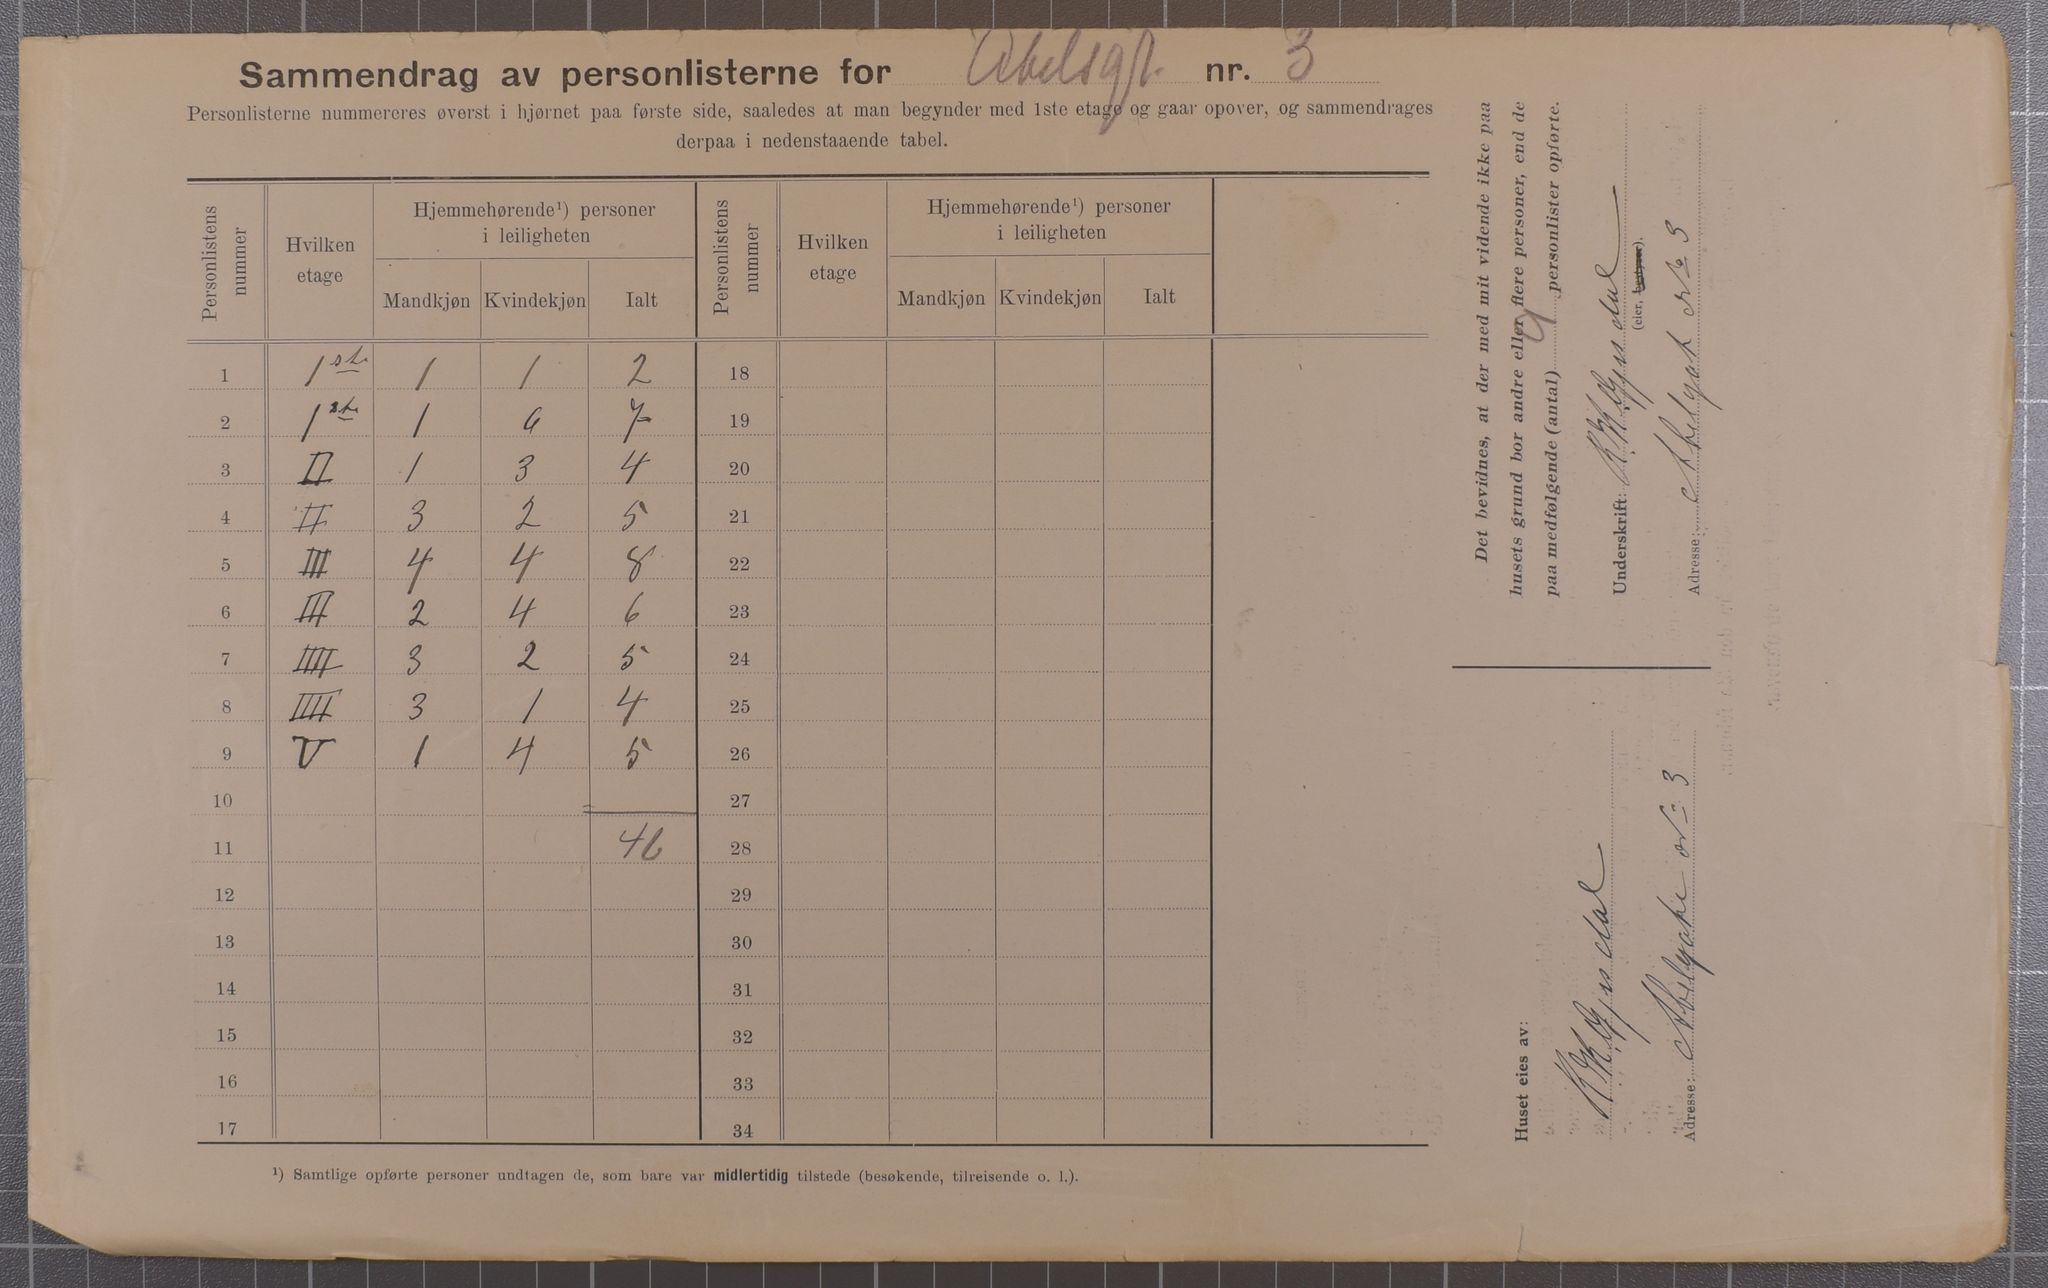 Sammendrag av personlisterne for Abelsgt. nr. 3
Personlisterne nummereres øverst i hjørnet paa første side, saaledes at man begynder med 1ste etage og gaar opover, og sammendrages
derpaa i nedenstaaende tabel.
Personlistens nummer Hvilken etage Hjemmehørende¹) personer i leiligheten Personlistens nummer Hvilken etage Hjemmehørende¹) personer i leiligheten
Mandkjøn Kvindekjøn Ialt Mandkjøn Kvindekjøn Ialt
1 1ste 1 1 2 18
2 1ste 1 6 7 19
3 II 1 3 4 20
4 II 3 2 5 21
5 III 4 4 8 22
6 III 2 4 6 23
7 IIII 3 2 5 24
8 IIII 3 1 4 25
9 V 1 4 5 26
10 27
11 46 28
12 29
13 30
14 31
15 32
16 33
17 34
¹) Samtlige opførte personer undtagen de, som bare var midlertidig tilstede (besøkende, tilreisende o. l.).
Det bevidnes, at der med mit vidende ikke paa
husets grund bor andre eller flere personer, end de
paa medfølgende (antal) 9 personlister opførte.
Underskrift:
(eier, bestyrer).
Adresse: No 3
Huset eies av:
Adresse: No 3